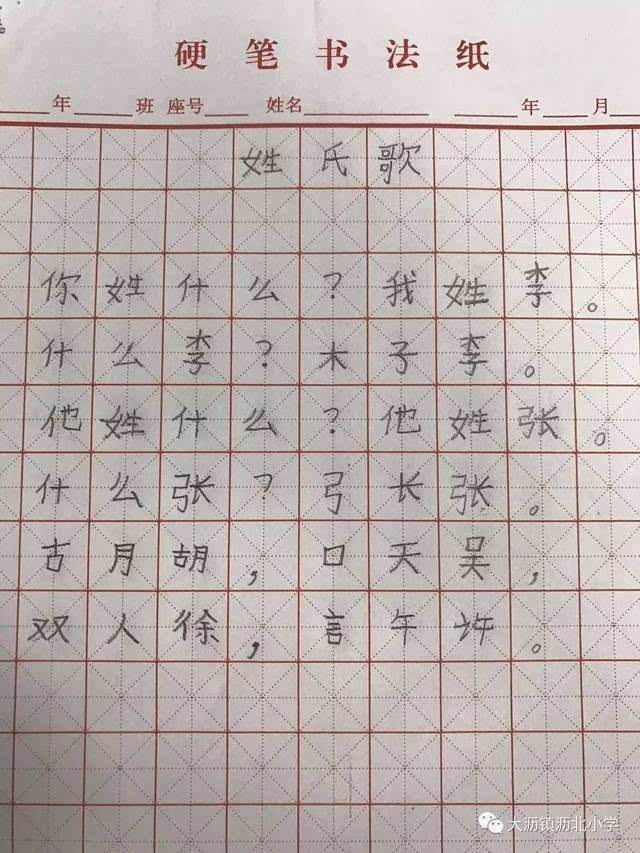 硬笔书法纸
年 班 座号 姓名 年 月
姓氏歌
你姓什么？我姓李。
什么李？木子李。
他姓什么？他姓张。
什么张？弓长张。
古月胡，口天吴，
双人徐，言午许。
大沥镇沥北小学